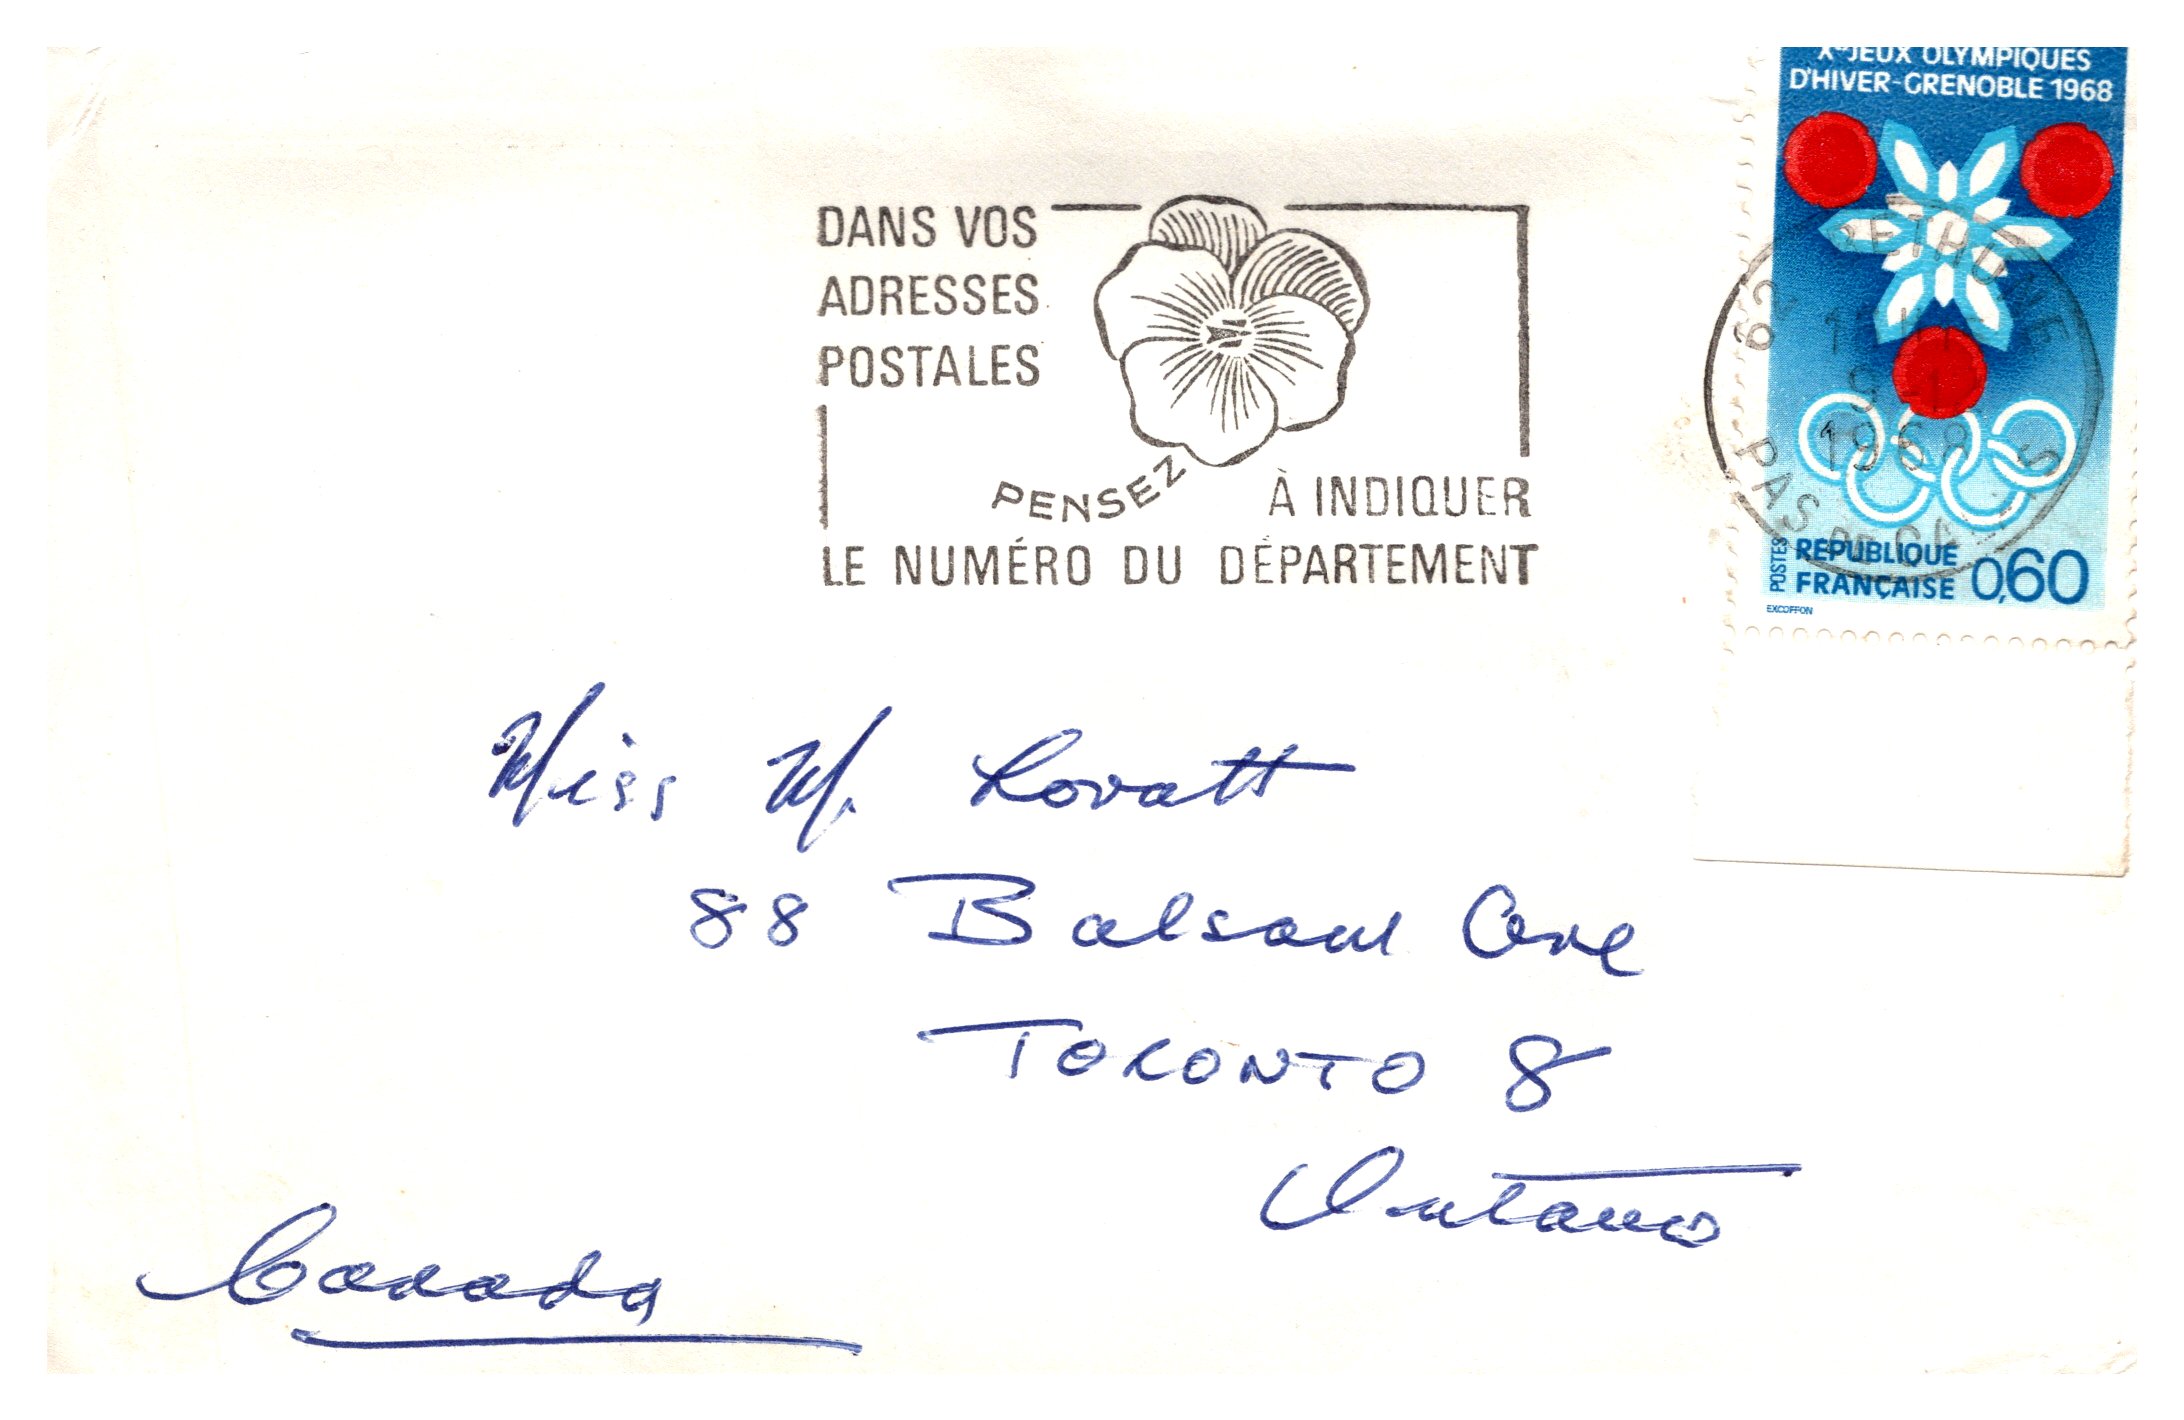 Xes JEUX OLYMPIQUES
D'HIVER-GRENOBLE 1968
POSTES
RÉPUBLIQUE
FRANÇAISE 0,60
EXCOFFON
62 BETHUNE
1968
PAS DE CALAIS
DANS VOS
ADRESSES
POSTALES
PENSEZ À INDIQUER
LE NUMÉRO DU DÉPARTEMENT
Miss M. Lovatt
88 Balsam Ave
TORONTO 8
Ontario
Canada